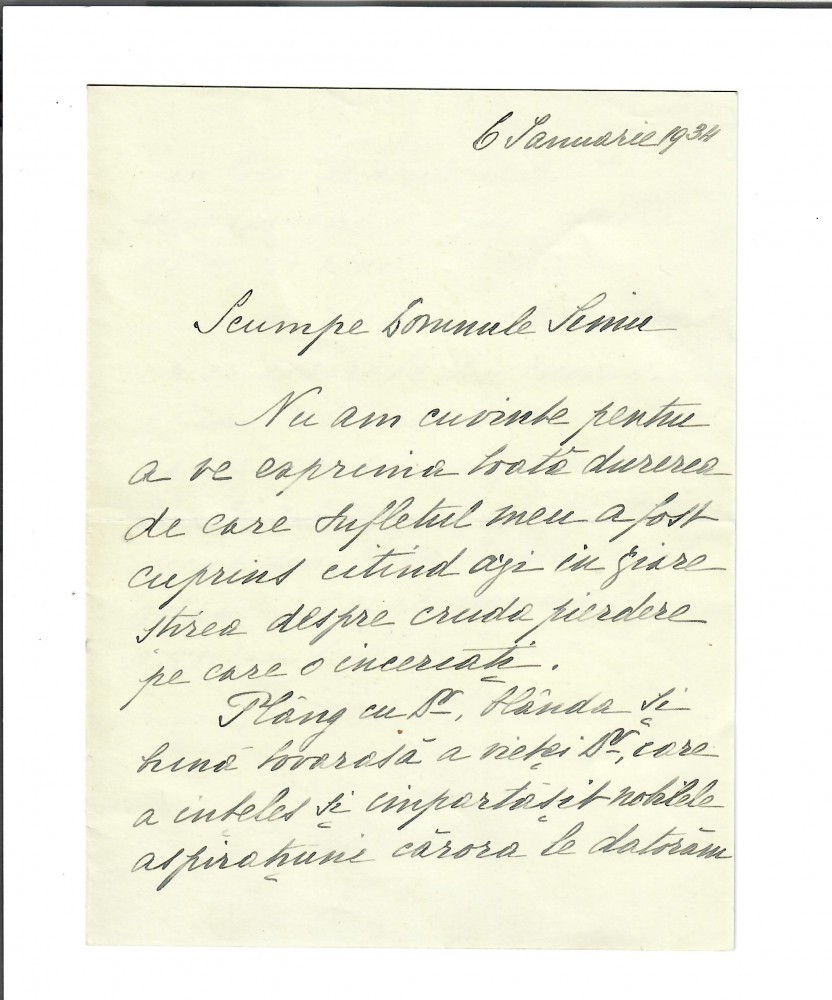 6 Ianuarie 1934
Scumpe Domnule Simu
Nu am cuvinte pentru
a ve exprima toată durerea
de care sufletul meu a fost
cuprins citind azi in ziare
stirea despre cruda pierdere
pe care o incercați.
Plâng cu Dv, blânda și
bună tovarasă a vieței Dv, care
a înțeles și impartășit nobilele
aspirațiuni cărora le datorăm